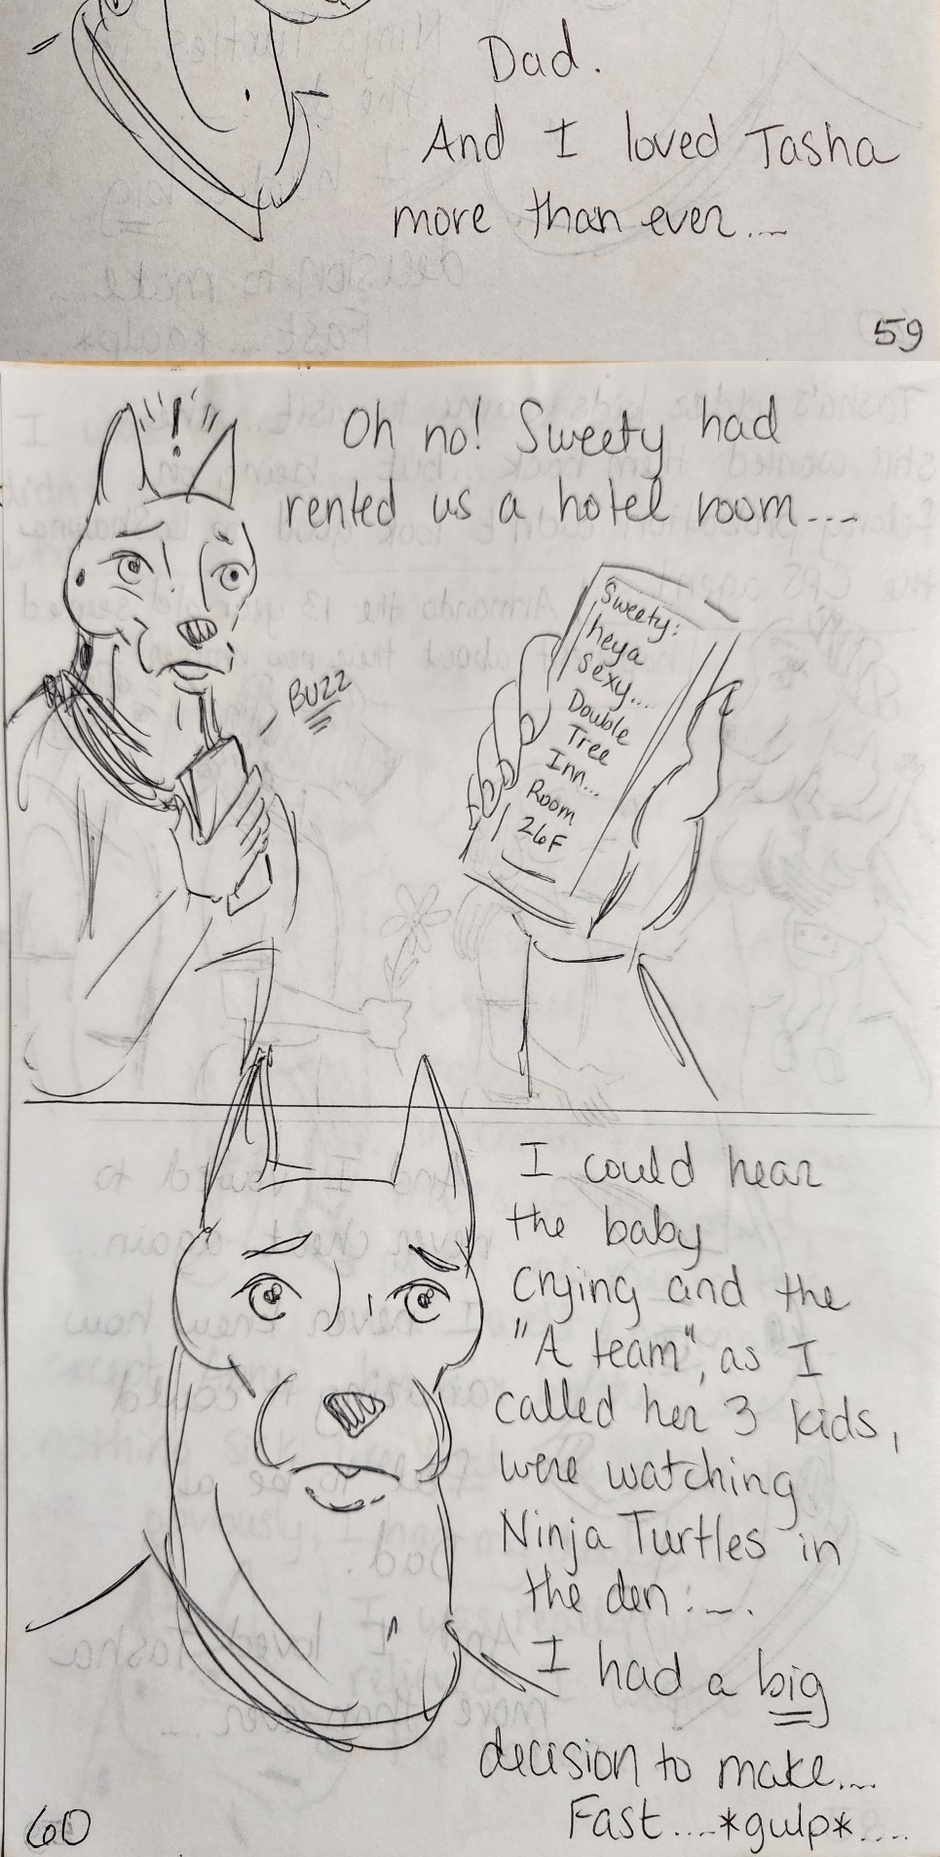 Dad.
And I loved Tasha
more than ever....
59
!
Oh no! Sweety had
rented us a hotel room....
BUZZ
Sweety:
heya
sexy...
Double
Tree
Inn...
Room
26F
I could hear
the baby
crying and the
"A team", as I
called her 3 kids,
were watching
Ninja Turtles in
the den....
I had a big
decision to make....
Fast....*gulp*....
60